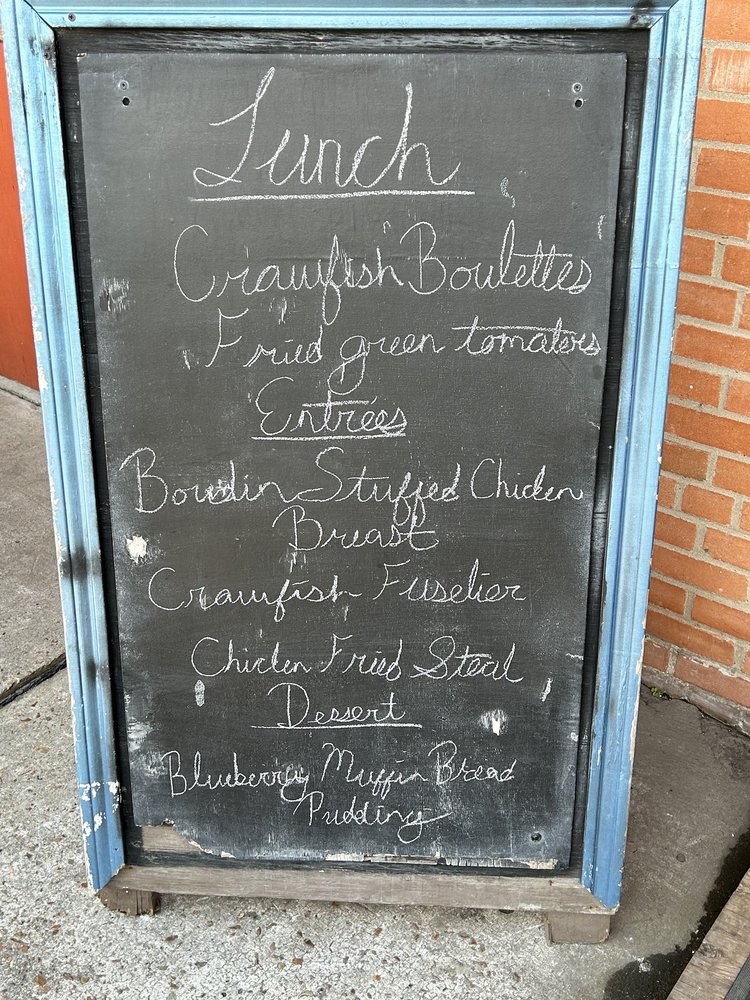 Lunch
Crawfish Boulettes
Fried green tomatoes
Entrées
Boudin Stuffed Chicken
Breast
Crawfish Fuselier
Chicken Fried Steak
Dessert
Blueberry Muffin Bread
Pudding